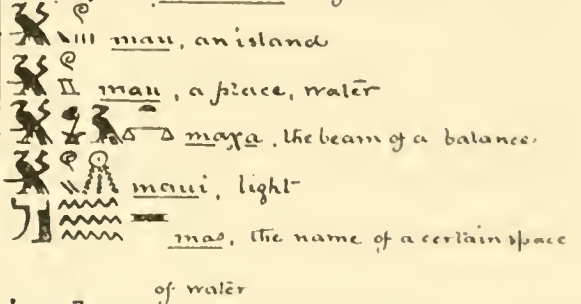 mau, an island
mau, a place, water
maχa, the beam of a balance.
maui, light
mas, the name of a certain space
of water